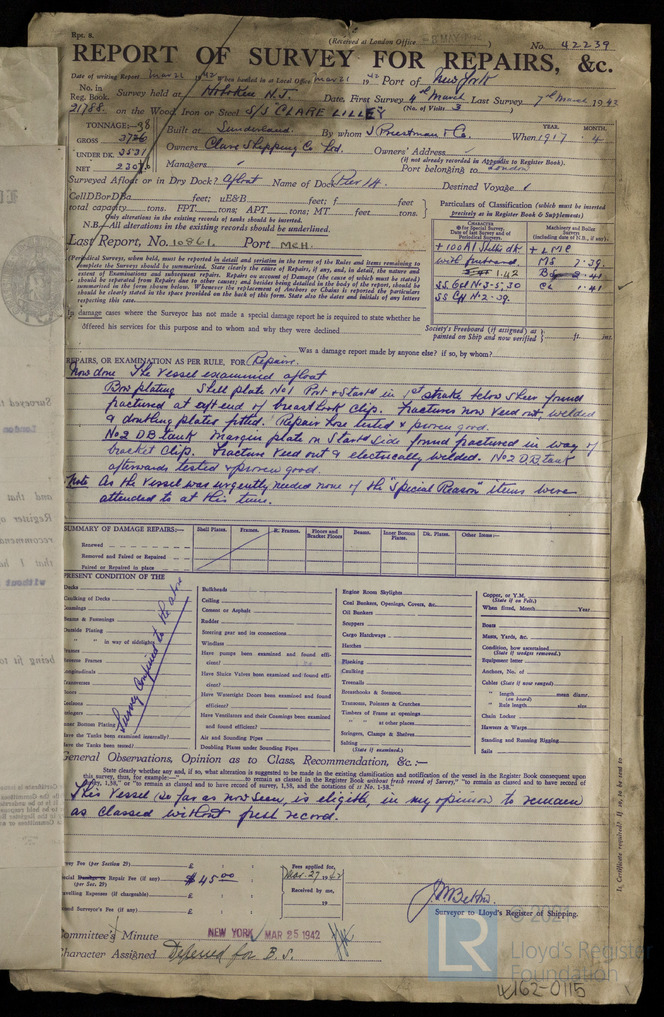 Rpt. 8.
(Received at London Office 5 MAY 1942)
No. 42239
REPORT OF SURVEY FOR REPAIRS, &c.
Date of writing Report Mar 21 1942 When handed in at Local Office Mar 21 1942 Port of New York
No. in Reg. Book. Survey held at Hoboken N.J. Date, First Survey 4th March Last Survey 7th March 1942
(No. of Visits 3)
21788. on the Wood, Iron or Steel S/S CLARE LILLEY
TONNAGE:—
GROSS 3726
UNDER DK. 3531
NET
Built at Sunderland. By whom J Priestman & Co. When 1917 . 4
YEAR. MONTH.
Owners Clare Shipping Co Ltd. Owners' Address
(if not already recorded in Appendix to Register Book).
Managers Port belonging to London
Surveyed Afloat or in Dry Dock? Afloat Name of Dock Pier 14. Destined Voyage
CellDBorDBa feet; uE&B feet; f feet
total capacity tons. FPT tons; APT tons; MT feet tons.
Only alterations in the existing records of tanks should be inserted.
N.B.—All alterations in the existing records should be underlined.
Last Report, No. 10861 Port MCH.
Particulars of Classification (which must be inserted precisely as in Register Book & Supplements)
CHARACTER
for Special Survey. Date of last Survey and of Periodical Surveys.
Machinery and Boiler Surveys (including date of N.B., if any).
+ 100 A1 Shltr dk
with freeboard
1.42
SS Gbl No 3-5,30
SS Cff No 2-39.
+ LMC
MS 7.39
BS 2.41
CL 1.41
(Periodical Surveys, when held, must be reported in detail and seriatim in the terms of the Rules and items remaining to complete the Surveys should be summarised. State clearly the cause of Repairs, if any, and, in detail, the nature and extent of Examinations and subsequent repairs. Repairs on account of Damage (the cause of which must be stated) should be separated from Repairs due to other causes; and besides being detailed in the body of the report, should be summarised in the form shown below. Whenever the replacement of Anchors or Chains is reported the particulars should be clearly stated in the space provided on the back of this form. State also the dates and initials of any letters respecting this case.
In damage cases where the Surveyor has not made a special damage report he is required to state whether he
offered his services for this purpose and to whom and why they were declined
Society's Freeboard (if assigned) as painted on Ship and now verified ft. ins.
Was a damage report made by anyone else? if so, by whom?
REPAIRS, OR EXAMINATION AS PER RULE, FOR Repairs.
Now done The vessel examined afloat
Bow plating Shell plate No1 Port & Starbd in 1st strake below sheer found
fractured at aft end of breasthook clip. Fractures now veed out, welded
& doubling plates fitted. Repair hose tested & proven good.
No 2 DB tank Margin plate on Starbd side found fractured in way of
bracket clip. Fracture veed out & electrically welded. No 2 DB tank
afterwards tested & proven good.
Note As the vessel was urgently needed none of the "Special Reason" items were
attended to at this time.
SUMMARY OF DAMAGE REPAIRS:—
Shell Plates. Frames. R. Frames. Floors and Bracket Floors Beams. Inner Bottom Plates. Dk. Plates. Other Items:—
Renewed
Removed and Faired or Repaired
Faired or Repaired in place
PRESENT CONDITION OF THE
Survey confined to the above
Decks
Caulking of Decks
Coamings
Beams & Fastenings
Outside Plating
" " in way of sidelights
Frames
Reverse Frames
Longitudinals
Transverses
Floors
Keelsons
Stringers
Inner Bottom Plating
Have the Tanks been examined internally?
Have the Tanks been tested?
Bulkheads
Ceiling
Cement or Asphalt
Rudder
Steering gear and its connections
Windlass
Have pumps been examined and found efficient?
Have Sluice Valves been examined and found efficient?
Have Watertight Doors been examined and found efficient?
Have Ventilators and their Coamings been examined and found efficient?
Air and Sounding Pipes
Doubling Plates under Sounding Pipes
Engine Room Skylights
Coal Bunkers, Openings, Covers, &c.
Oil Bunkers
Scuppers
Cargo Hatchways
Hatches
Planking
Caulking
Treenails
Breasthooks & Stemson
Transoms, Pointers & Crutches
Timbers of Frame at openings
" " at other places
Stringers, Clamps & Shelves
Salting
(State if examined.)
Copper, or Y.M.
(State if on Felt.)
When fitted, Month Year
Boats
Masts, Yards, &c.
Condition, how ascertained
(State if wedges removed.)
Equipment letter
Anchors, No. of
Cables (State if now ranged)
" length mean diamr.
(on board)
" Rule length size
Chain Locker
Hawsers & Warps
Standing and Running Rigging
Sails
General Observations, Opinion as to Class, Recommendation, &c. :—
State clearly whether any and, if so, what alteration is suggested to be made in the existing classification and notification of the vessel in the Register Book consequent upon
This Vessel (so far as now seen) is eligible, in my opinion to remain
as classed without fresh record.
Survey Fee (per Section 29) £
Special Damage or Repair Fee (if any) (per Sec. 29) $45.00
Travelling Expenses (if chargeable) £
Second Surveyor's Fee (if any) £
Fees applied for, Mar. 27 1942
Received by me,
19
Surveyor to Lloyd's Register of Shipping.
Committee's Minute NEW YORK MAR 25 1942
Character Assigned Deferred for B.S.
Is Certificate required? If so, to be sent to
© 2021
LR
Lloyd's Register
Foundation
W162-0115